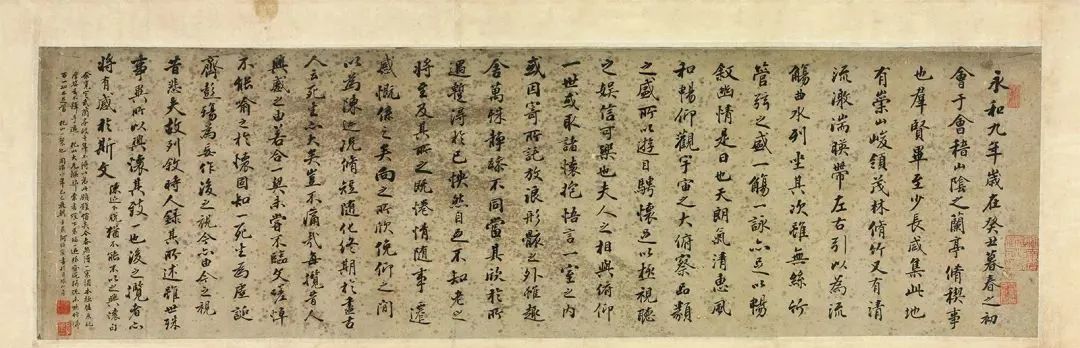 永和九年歲在癸丑暮春之初
會于會稽山陰之蘭亭脩稧事
也群賢畢至少長咸集此地
有崇山峻領茂林脩竹又有清
流激湍暎帶左右引以為流
觴曲水列坐其次雖無絲竹
管弦之盛一觴一詠亦足以暢
敘幽情是日也天朗氣清惠風
和暢仰觀宇宙之大俯察品類
之盛所以遊目騁懷足以極視聽
之娛信可樂也夫人之相與俯仰
一世或取諸懷抱悟言一室之內
或因寄所託放浪形骸之外雖趣
舍萬殊靜躁不同當其欣於所
遇蹔得於己怏然自足不知老之
將至及其所之既惓情隨事遷
感慨係之矣向之所欣俛仰之間
以為陳迹況脩短隨化終期於盡古
人云死生亦大矣豈不痛哉每攬昔人
興感之由若合一契未嘗不臨文嗟悼
不能喻之於懷固知一死生為虛誕
齊彭殤為妄作後之視今亦由今之視
昔悲夫故列敘時人錄其所述雖世殊
事異所以興懷其致一也後之攬者亦
將有感於斯文
陳迹下脫猶不能不以之興懷句